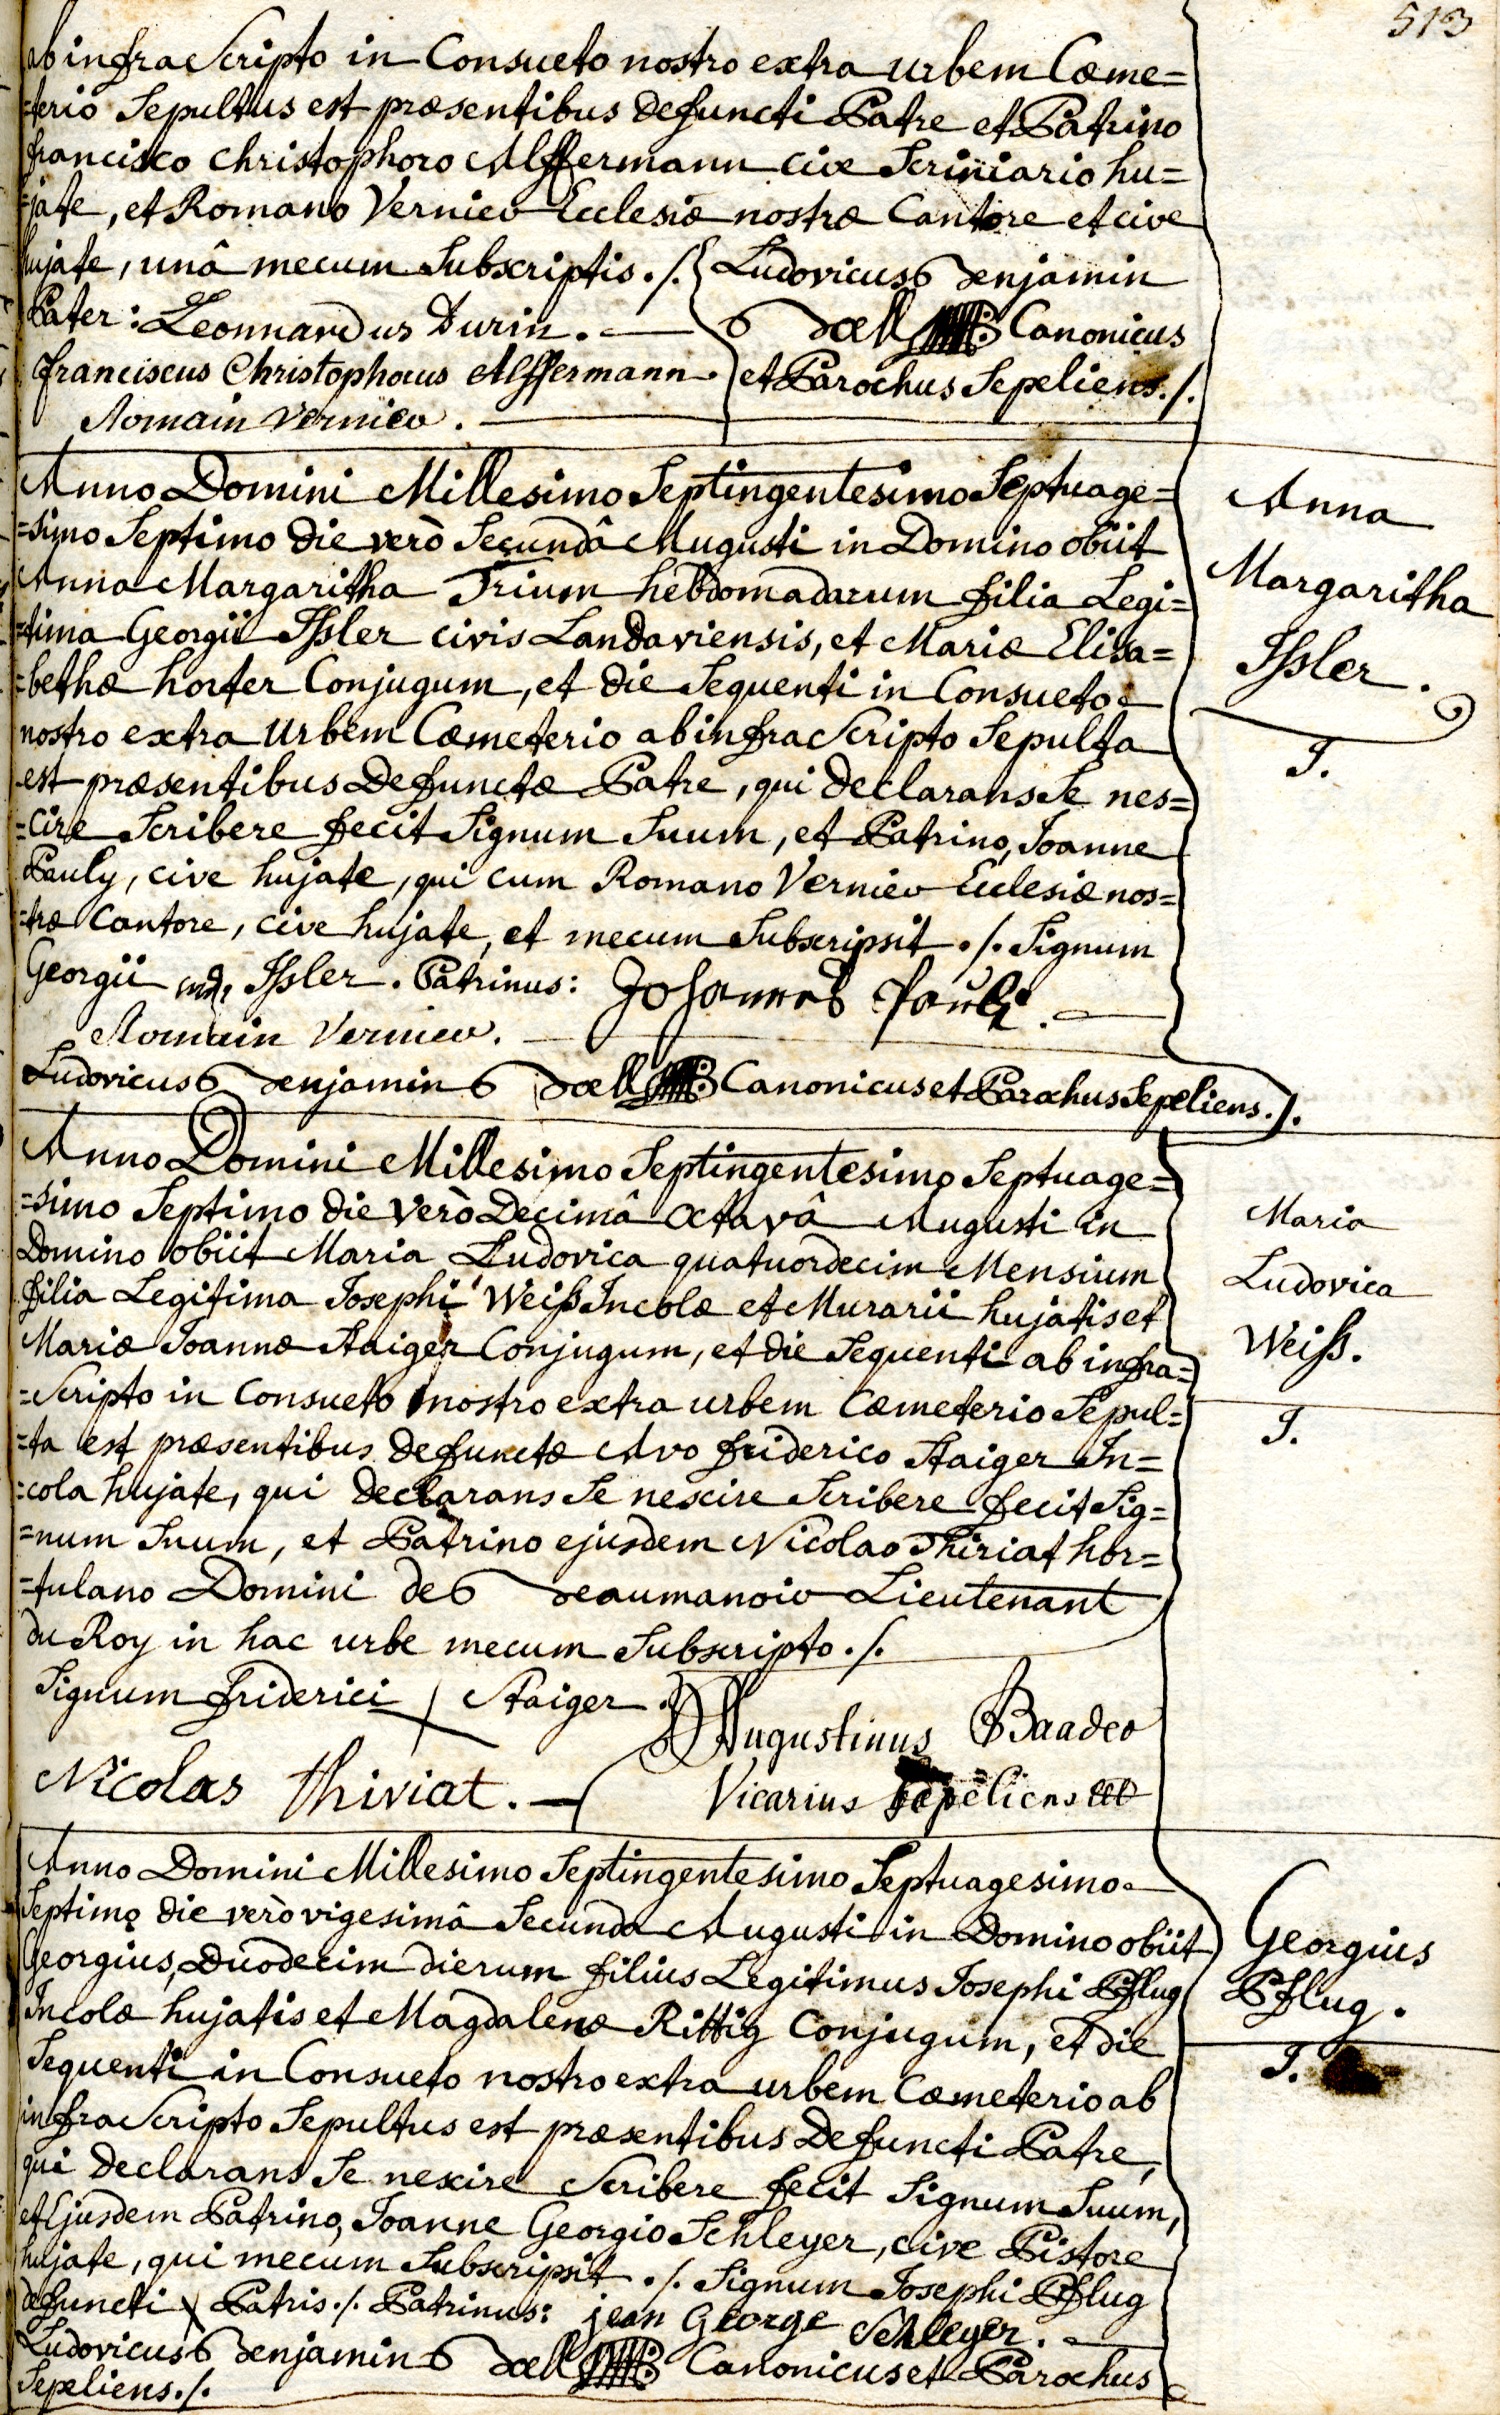 513
ab infra Scripto in Consueto nostro extra urbem Cœme=
=terio Sepultus est præsentibus defuncti Patre et Patrino
francisco christophoro Alffermann cive Scriniario hu=
=jate, et Romano Vernier Ecclesiæ nostræ Cantore et cive
hujate, unâ mecum Subscriptis ./. Ludovicus Benjamin
Pater: Leonnardus Durin. Boell Canonicus
franciscus Christophorus Alffermann. et Parochus Sepeliens ./.
Romain Vernier.
Anno Domini Millesimo Septingentesimo Septuage=
=simo Septimo die verò Secundâ Augusti in Domino obiit
Anna Margaritha Trium hebdomadarum filia Legi=
=tima Georgii Issler civis Landaviensis, et Mariæ Elisa=
=bethæ horter Conjugum, et die Sequenti in Consueto
nostro extra Urbem Cœmeterio ab infra Scripto Sepulta
est præsentibus Defunctæ Patre, qui declarans Se nes=
=cire Scribere fecit Signum Suum, et Patrino, Joanne
Pauly, cive hujate, qui cum Romano Vernier Ecclesiæ nos=
=træ Cantore, cive hujate, et mecum Subscripsit ./. Signum
Georgii Issler. Patrinus: Johannes Pauli.
Romain Vernier.
Ludovicus Benjamin Boell Canonicus et Parochus Sepeliens ./.
Anna
Margaritha
Issler.
J.
Anno Domini Millesimo Septingentesimo Septuage=
=simo Septimo die verò Decimâ Octavâ Augusti in
Domino obiit Maria Ludovica quatuordecim Mensium
filia Legitima Josephi Weiß Incolæ et Murarii hujatis et
Mariæ Joannæ Staiger Conjugum, et die Sequenti ab infra=
=Scripto in Consueto nostro extra urbem Cœmeterio Sepul=
=ta est præsentibus defunctæ Avo friderico Staiger In=
=cola hujate, qui declarans Se nescire Scribere fecit Sig=
=num Suum, et Patrino ejusdem Nicolao Thiriat hor=
=tulano Domini de Beaumanoir Lieutenant
du Roy in hac urbe mecum Subscripto ./.
Signum friderici / Staiger.
Augustinus Baader
Nicolas thiriat. Vicarius sepeliens
Maria
Ludovica
Weiß.
J.
Anno Domini Millesimo Septingentesimo Septuagesimo
Septimo die verò vigesimâ Secunda Augusti in Domino obiit
Georgius, Duodecim dierum filius Legitimus Josephi Pflug
Incolæ hujatis et Magdalenæ Rittig Conjugum, et die
Sequenti in Consueto nostro extra urbem Cœmeterio ab
infra Scripto Sepultus est præsentibus Defuncti Patre,
qui declarans Se nescire Scribere fecit Signum Suum,
et Ejusdem Patrino, Joanne Georgio Schleyer, cive Pistore
hujate, qui mecum Subscripsit ./. Signum Josephi Pflug
defuncti \ Patris ./. Patrinus: jean George Schleyer.
Ludovicus Benjamin Boell Canonicus et Parochus
Sepeliens ./.
Georgius
Pflug.
J.